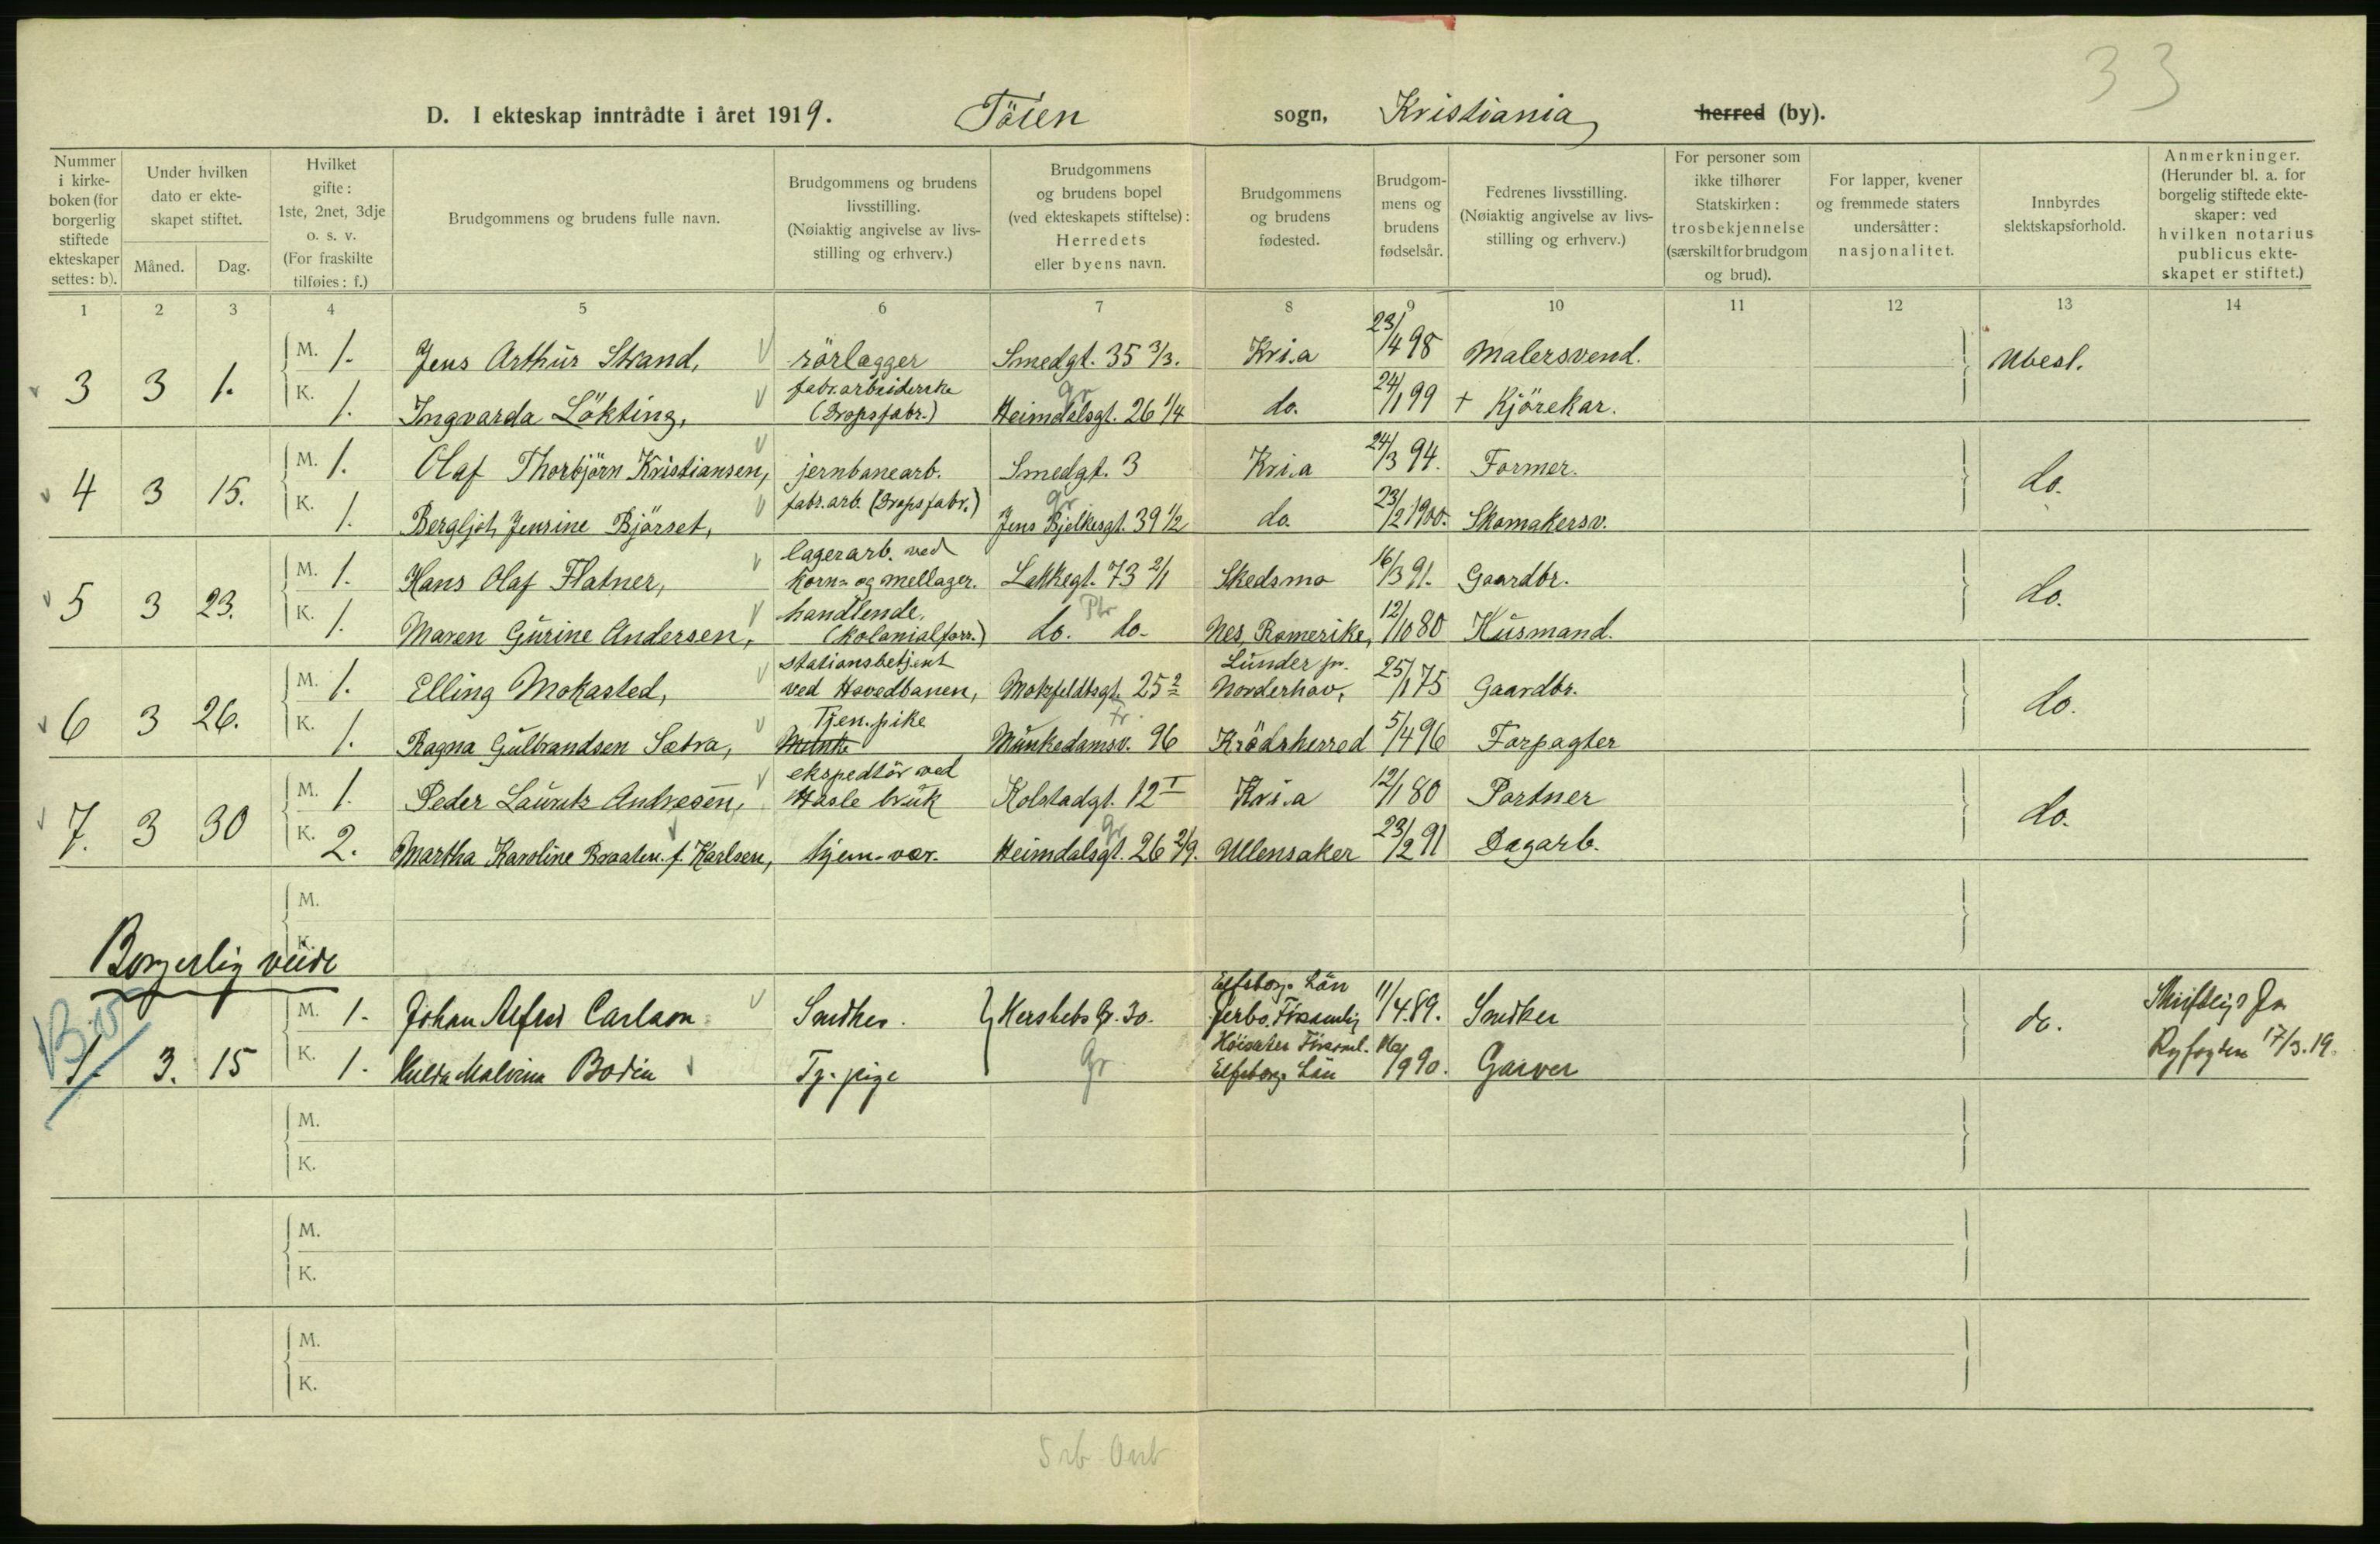 33
D. I ekteskap inntrådte i året 1919. Töien sogn, Kristiania herred (by).
Nummer i kirkeboken (for borgerlig stiftede ekteskaper settes: b).
Under hvilken dato er ekteskapet stiftet.
Måned. Dag.
Hvilket gifte: 1ste, 2net, 3dje o. s. v. (For fraskilte tilføies: f.)
Brudgommens og brudens fulle navn.
Brudgommens og brudens livsstilling. (Nøiaktig angivelse av livsstilling og erhverv.)
Brudgommens og brudens bopel (ved ekteskapets stiftelse): Herredets eller byens navn.
Brudgommens og brudens fødested.
Brudgommens og brudens fødselsår.
Fedrenes livsstilling. (Nøiaktig angivelse av livsstilling og erhverv.)
For personer som ikke tilhører Statskirken: trosbekjennelse (særskilt for brudgom og brud).
For lapper, kvener og fremmede staters undersåtter: nasjonalitet.
Innbyrdes slektskapsforhold.
Anmerkninger. (Herunder bl. a. for borgelig stiftede ekteskaper: ved hvilken notarius publicus ekteskapet er stiftet.)
1 2 3 4 5 6 7 8 9 10 11 12 13 14
3 3 1. M. 1. Jens Arthur Strand, rörlægger Smedgt. 35 3/3. Kri.a 23/4 98 Malersvend. Ubesl.
K. 1. Ingvarda Lökting, fabr.arbeiderske (Dropsfabr.) Heimdalsgt. 26 1/4 gr do. 24/1 99 + Kjörekar.
4 3 15. M. 1. Olaf Thorbjörn Kristiansen, jernbanearb. Smedgt. 3 Kri.a 24/3 94. Former. do.
K. 1. Bergljot Jensine Björset, fabr.arb. (Dropsfabr.) Jens Bjelkesgt. 39 1/2 gr do. 23/2 1900. Skomakersv.
5 3 23. M. 1. Hans Olaf Flatner, lagerarb. ved korn- og mellager. Lakkegt. 73 2/1 Skedsmo 16/3 91. Gaardbr. do.
K. 1. Maren Gurine Andersen, handlende, (kolonialforr.) do. do. Nes, Romerike, 12/10 80 Husmand.
6 3 26. M. 1. Elling Mokasted, stationsbetjent ved Hovedbanen, Motzfeldtsgt. 25 2 Lunder pr. Norderhov, 25/1 75 Gaardbr. do.
K. 1. Ragna Gulbrandsen Sætra, Tjen.pike Munke Munkedamsv. 96 Krödsherred 5/4 96 Forpagter
7. 3 30 M. 1. Peder Lauritz Andresen, ekspeditör ved Hasle bruk Kolstadgt. 12 I Kri.a 12/1 80 Portner do.
K. 2. Martha Karoline Braaten f. Karlsen, hjem-vær. Heimdalsgt. 26 2/9. gr Ullensaker 23/2 91 Dagarb.
M.
K.
Borgerlig viede
1. 3. 15 M. 1. Johan Alfred Carlson Snedker. Hersleb Gt. 30. Elfsborgs Län Församling 11/4.89. Snedker do.
K. 1. Hulda Malvina Bodin Tj. pige gr Elfsborgs Län 990. Garver 17/3.19.
M.
K.
M.
K.
M.
K.